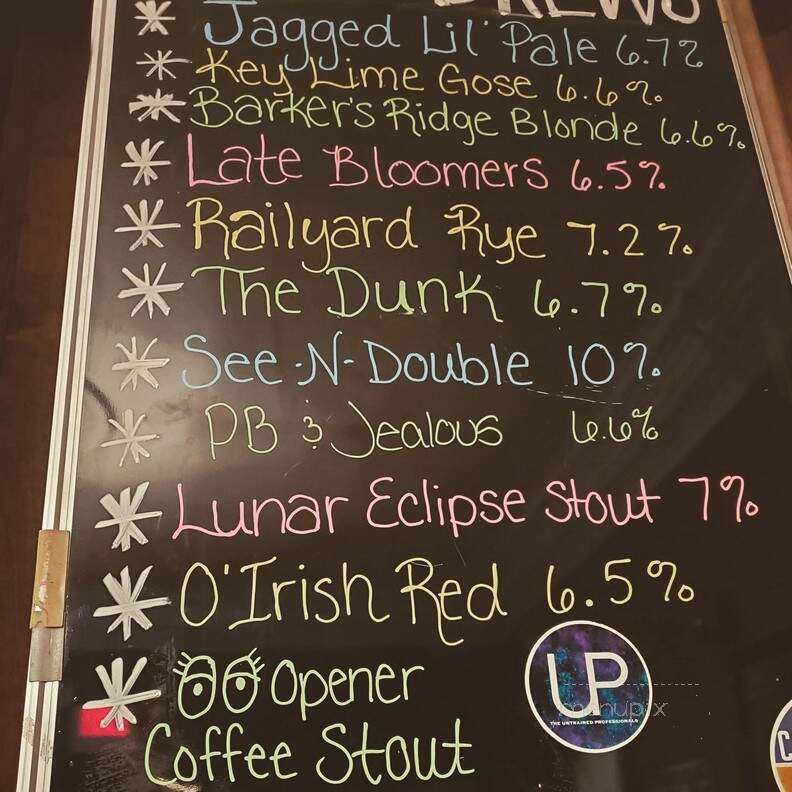 BREWS
Jagged Lil' Pale 6.7%
Key Lime Gose 6.6%
Barker's Ridge Blonde 6.6%
Late Bloomers 6.5%
Railyard Rye 7.2%
The Dunk 6.7%
See-N-Double 10%
PB & Jealous 6.6%
Lunar Eclipse Stout 7%
O'Irish Red 6.5%
Opener
Coffee Stout
UP
THE UNTRAINED PROFESSIONALS
menupix
C